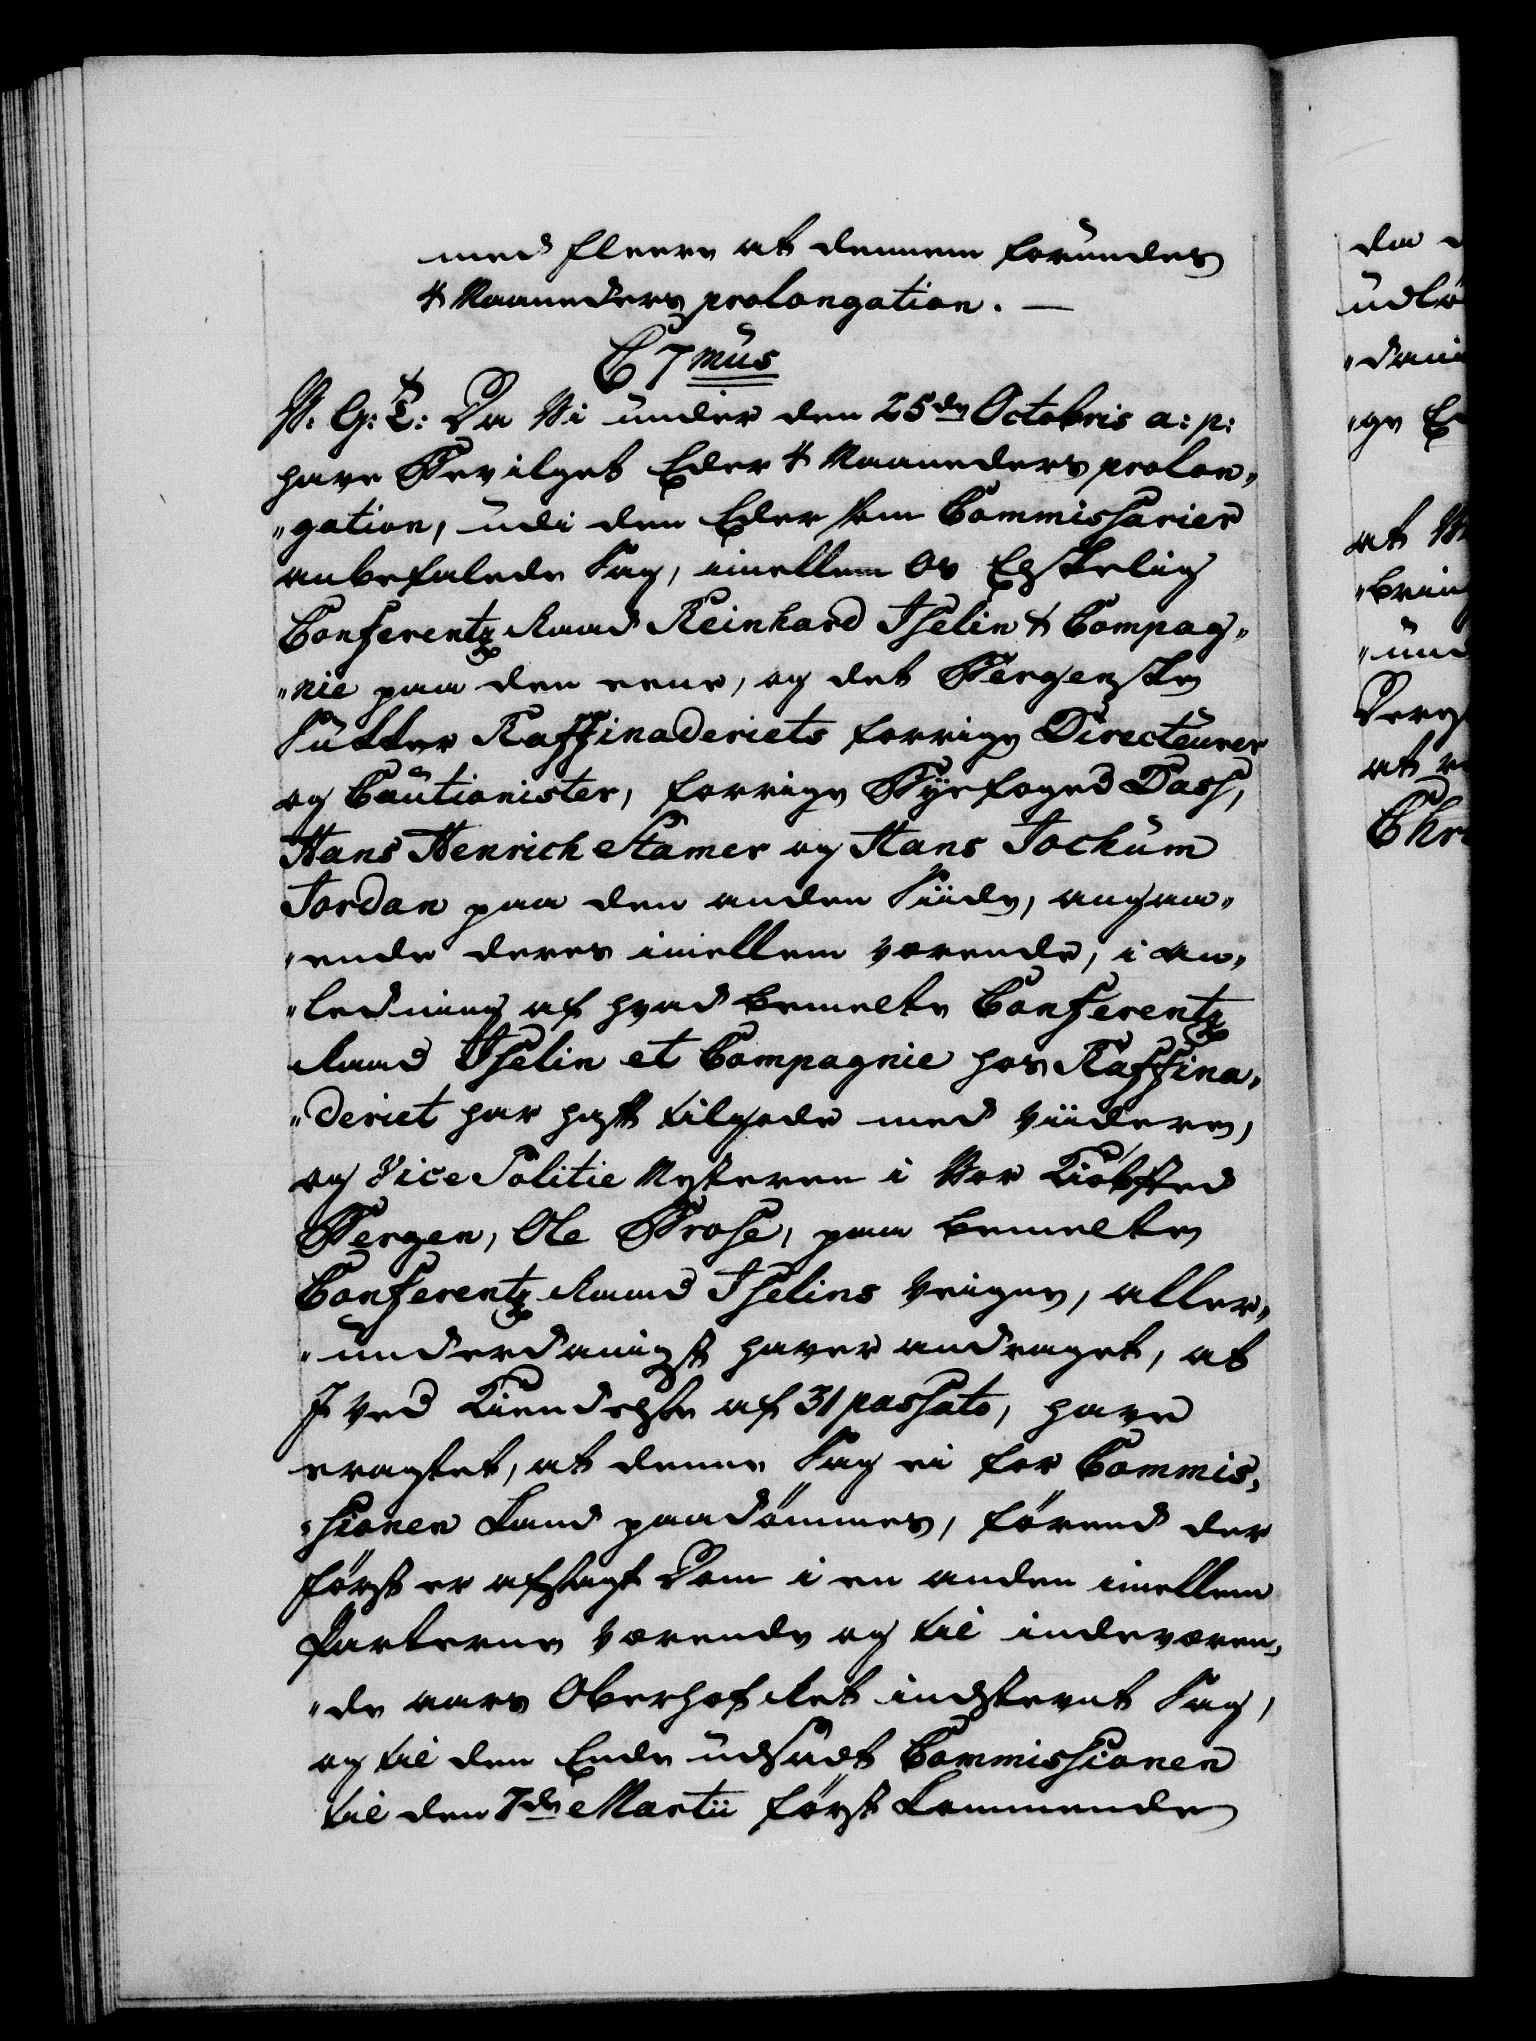 med fleere at dennem forundes
4 Maaneders prolongation. —
C 7mus
V. G: T: Da Vi under den 25de Octobris a: p:
have Bevilget Eder 4 Maaneders prolon„
„gation, udi den Eder som Commissarier
anbefalede Sag, imellem Os Elskelig
Conferentz Raad Reinhard Iselin & Compag„
„nie paa den eene, og det Bergenske
Sukker Raffinaderiets forrige Directeurer
og Cautionister, forrige Byefoged Dass,
Hans Henrich Stamer og Hans Jochum
Jordan paa den anden Siide, angaa„
„ende deres imellem værende, i an„
„ledning af hvad bemelte Conferentz
Raad Iselin et Compagnie hos Raffina„
„deriet har haft tilgode med viidere,
og Vice Politie Mesteren i Vor Kiøbsted
Bergen, Ole Brose, paa bemelte
Conferentz Raad Iselins veigne, aller„
„underdanigst haver andraget, at
I ved Kiendelse af 31 passato, have
eragtet, at denne Sag ei for Commis„
„sionen kand paadømmes, førend der
først er afsagt Dom i en anden imellem
Parterne værende og til indeværen„
„de aars Oberhof Ret indstevnt Sag,
og til den Ende udsadt Commissionen
til den 7de Martii først kommende
da
udlø
„dani
„ge
at
„brin
„un
at
Chr